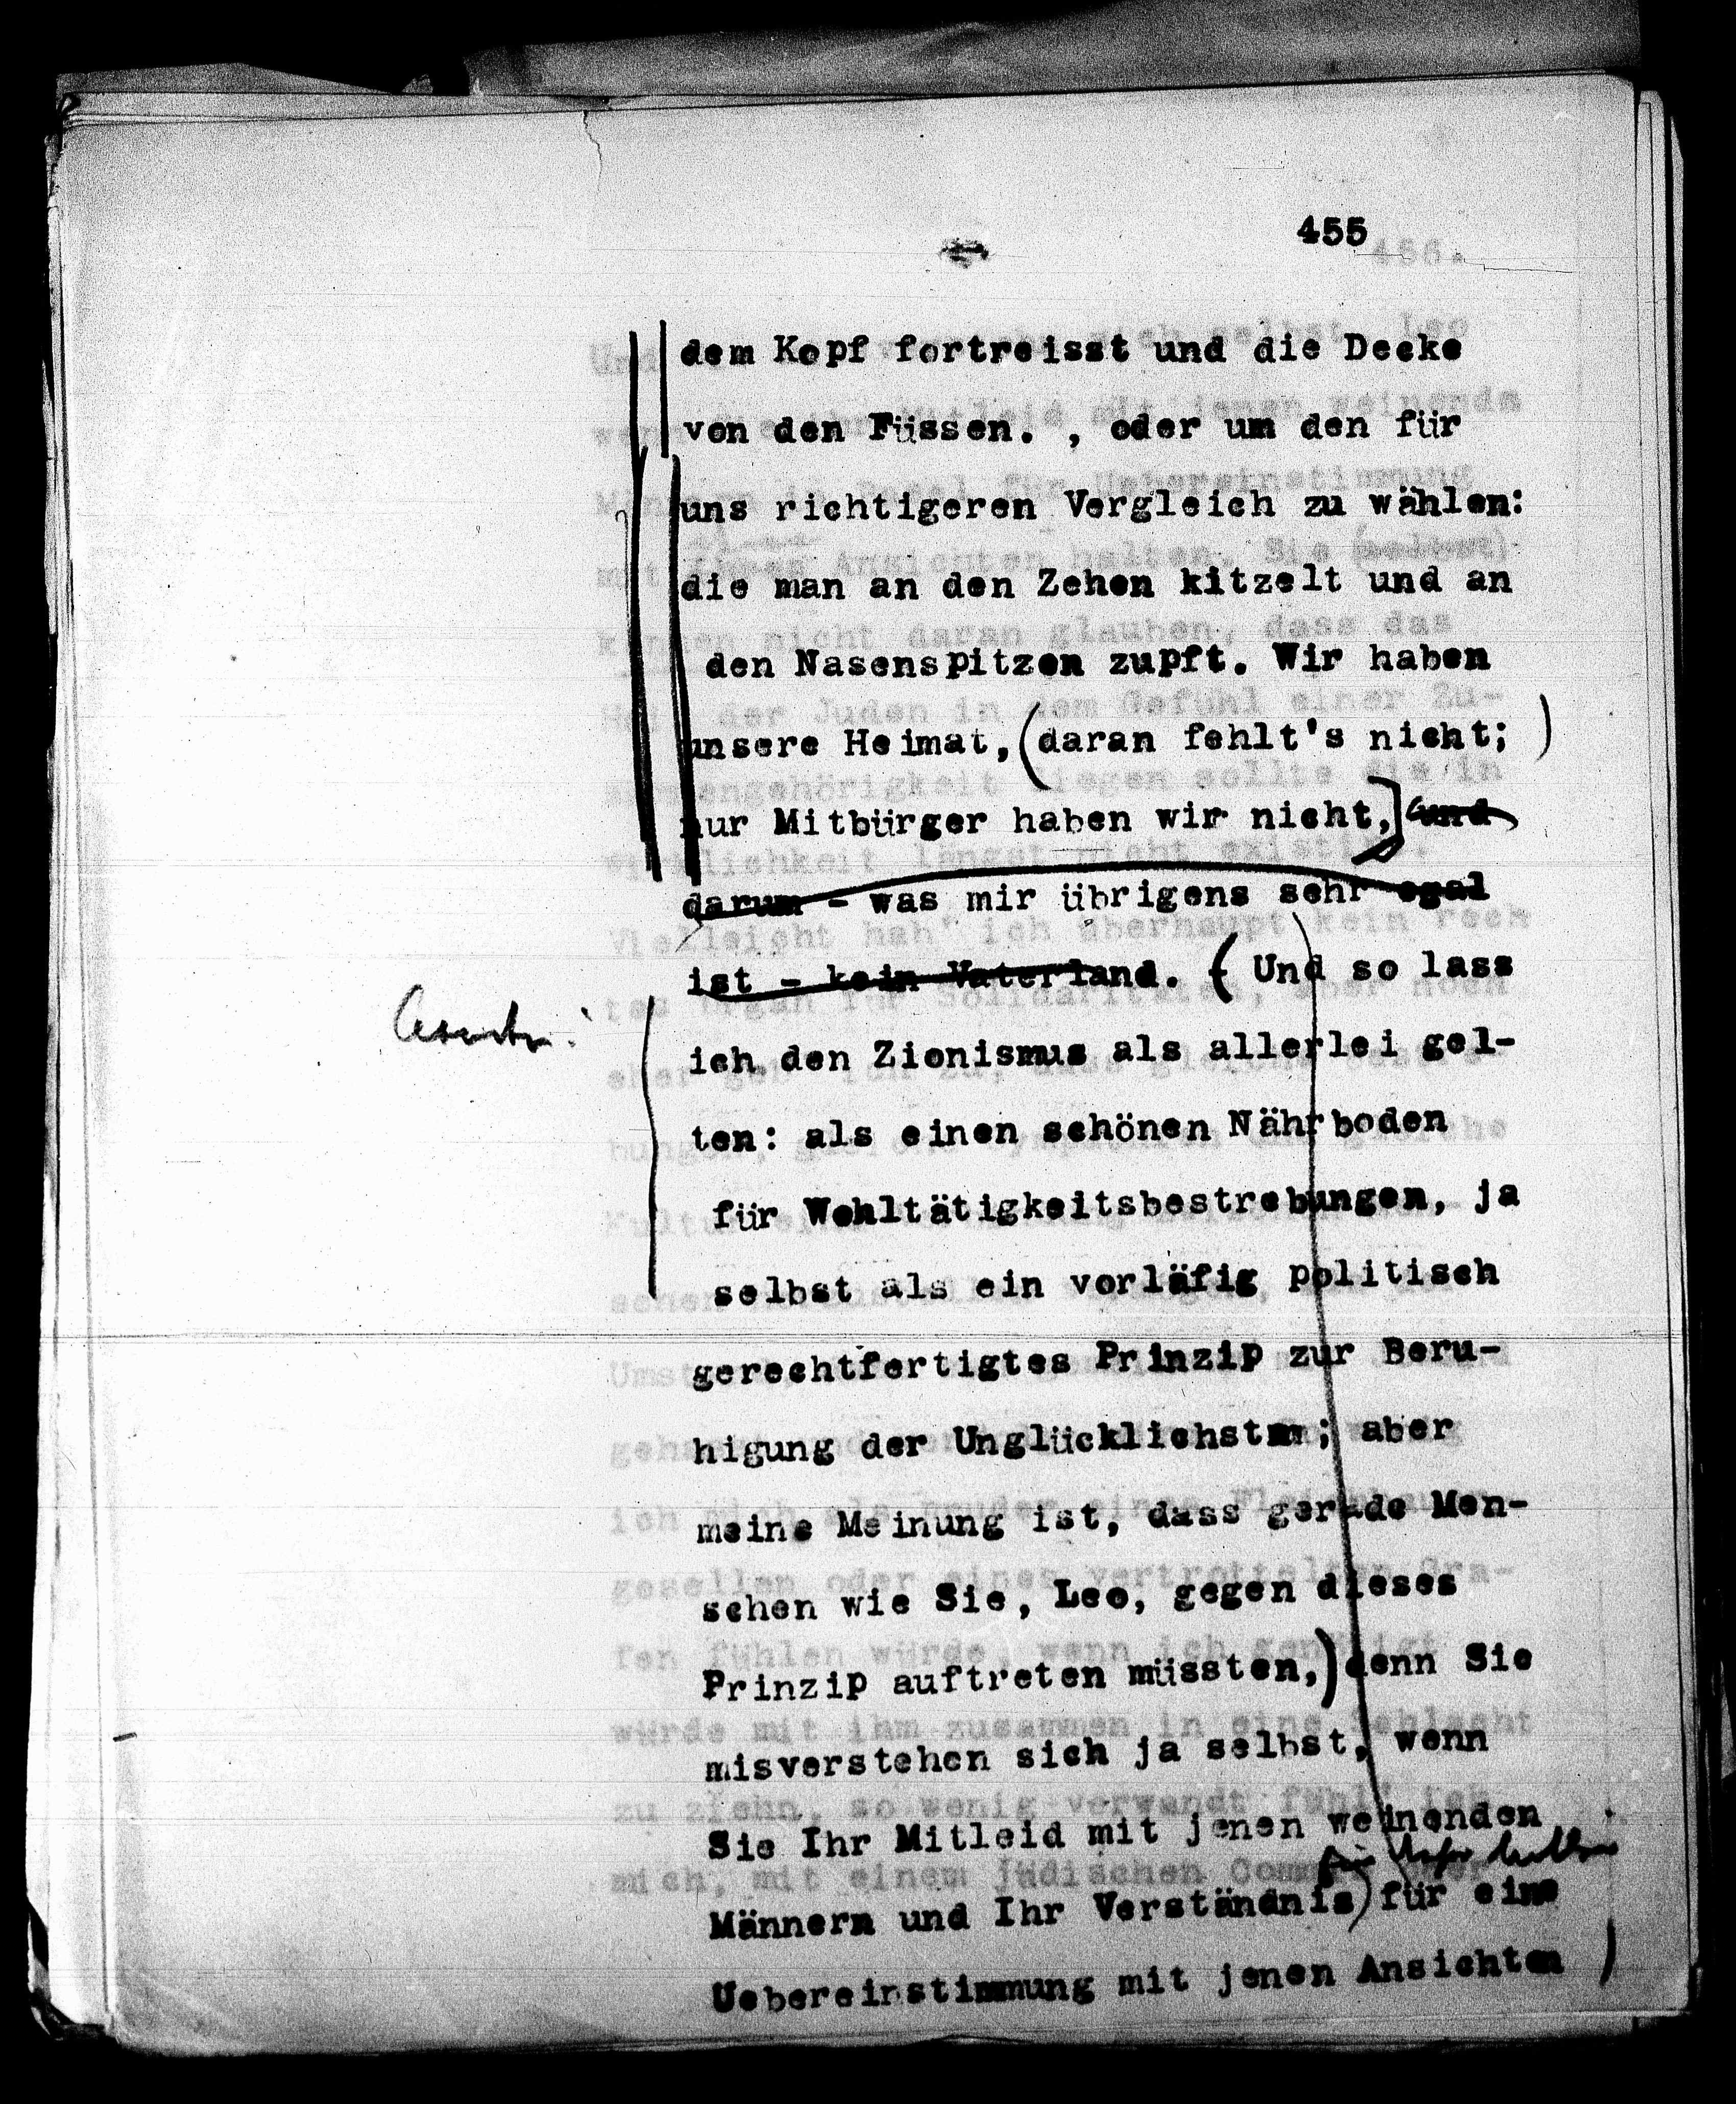 455
dem Kopf fortreisst und die Decke
von den Füssen. , oder um den für
uns richtigeren Vergleich zu wählen:
die man an den Zehen kitzelt und an
den Nasenspitzen zupft. Wir haben
unsere Heimat, (daran fehlt's nicht; )
nur Mitbürger haben wir nicht,] und
darum - was mir übrigens sehr egal
ist - kein Vaterland. ( Und so lass
ich den Zionismus als allerlei gel-
ten: als einen schönen Nährboden
für Wohltätigkeitsbestrebungen, ja
selbst als ein vorläfig politisch
gerechtfertigtes Prinzip zur Beru-
higung der Unglücklichsten; aber
meine Meinung ist, dass gerade Men-
schen wie Sie, Leo, gegen dieses
Prinzip auftreten müssten,) denn Sie
misverstehen sich ja selbst, wenn
Sie Ihr Mitleid mit jenen weinenden
Männern und Ihr Verständnis) für eine
Uebereinstimmung mit jenen Ansichten )